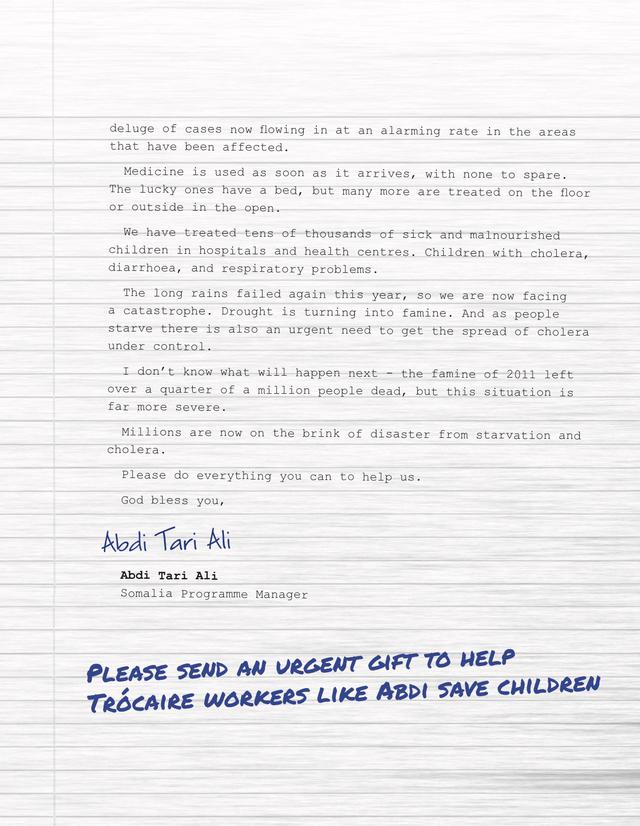 deluge of cases now flowing in at an alarming rate in the areas
that have been affected.
Medicine is used as soon as it arrives, with none to spare.
The lucky ones have a bed, but many more are treated on the floor
or outside in the open.
We have treated tens of thousands of sick and malnourished
children in hospitals and health centres. Children with cholera,
diarrhoea, and respiratory problems.
The long rains failed again this year, so we are now facing
a catastrophe. Drought is turning into famine. And as people
starve there is also an urgent need to get the spread of cholera
under control.
I don’t know what will happen next – the famine of 2011 left
over a quarter of a million people dead, but this situation is
far more severe.
Millions are now on the brink of disaster from starvation and
cholera.
Please do everything you can to help us.
God bless you,
Abdi Tari Ali
Abdi Tari Ali
Somalia Programme Manager
PLEASE SEND AN URGENT GIFT TO HELP
TRÓCAIRE WORKERS LIKE ABDI SAVE CHILDREN